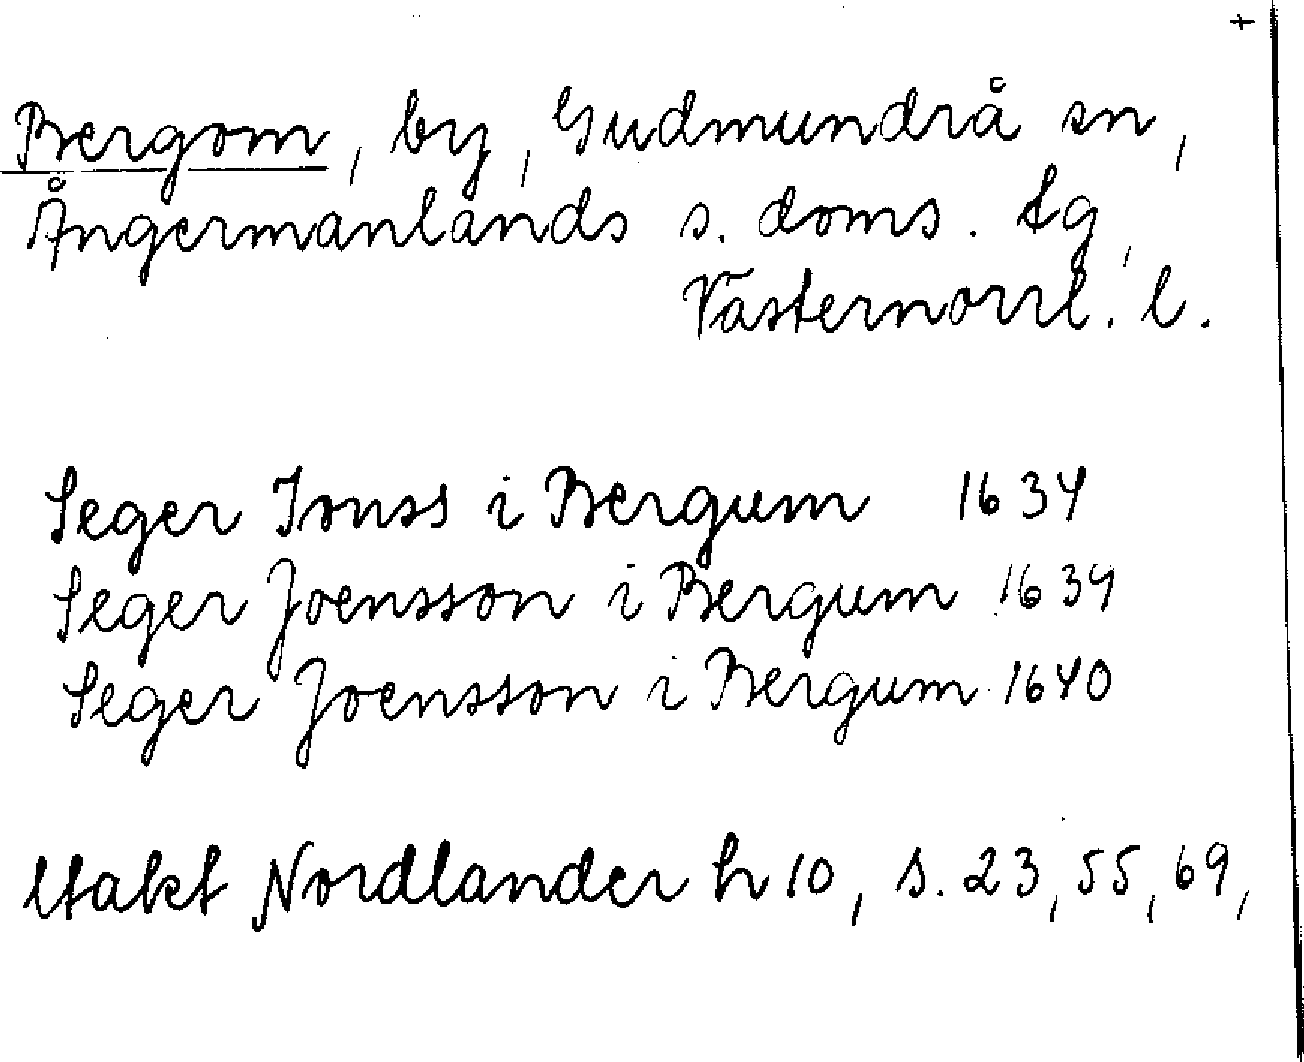 +
Bergom, by, Gudmundrå sn,
Ångermanlands s. doms. tg,
Västernorrl. l.
Seger Jonss i Bergum 1634
Seger Joensson i Bergum 1639
Seger Joensson i Bergum 1640
Utakt Nordlander h 10, s. 23, 55, 69,